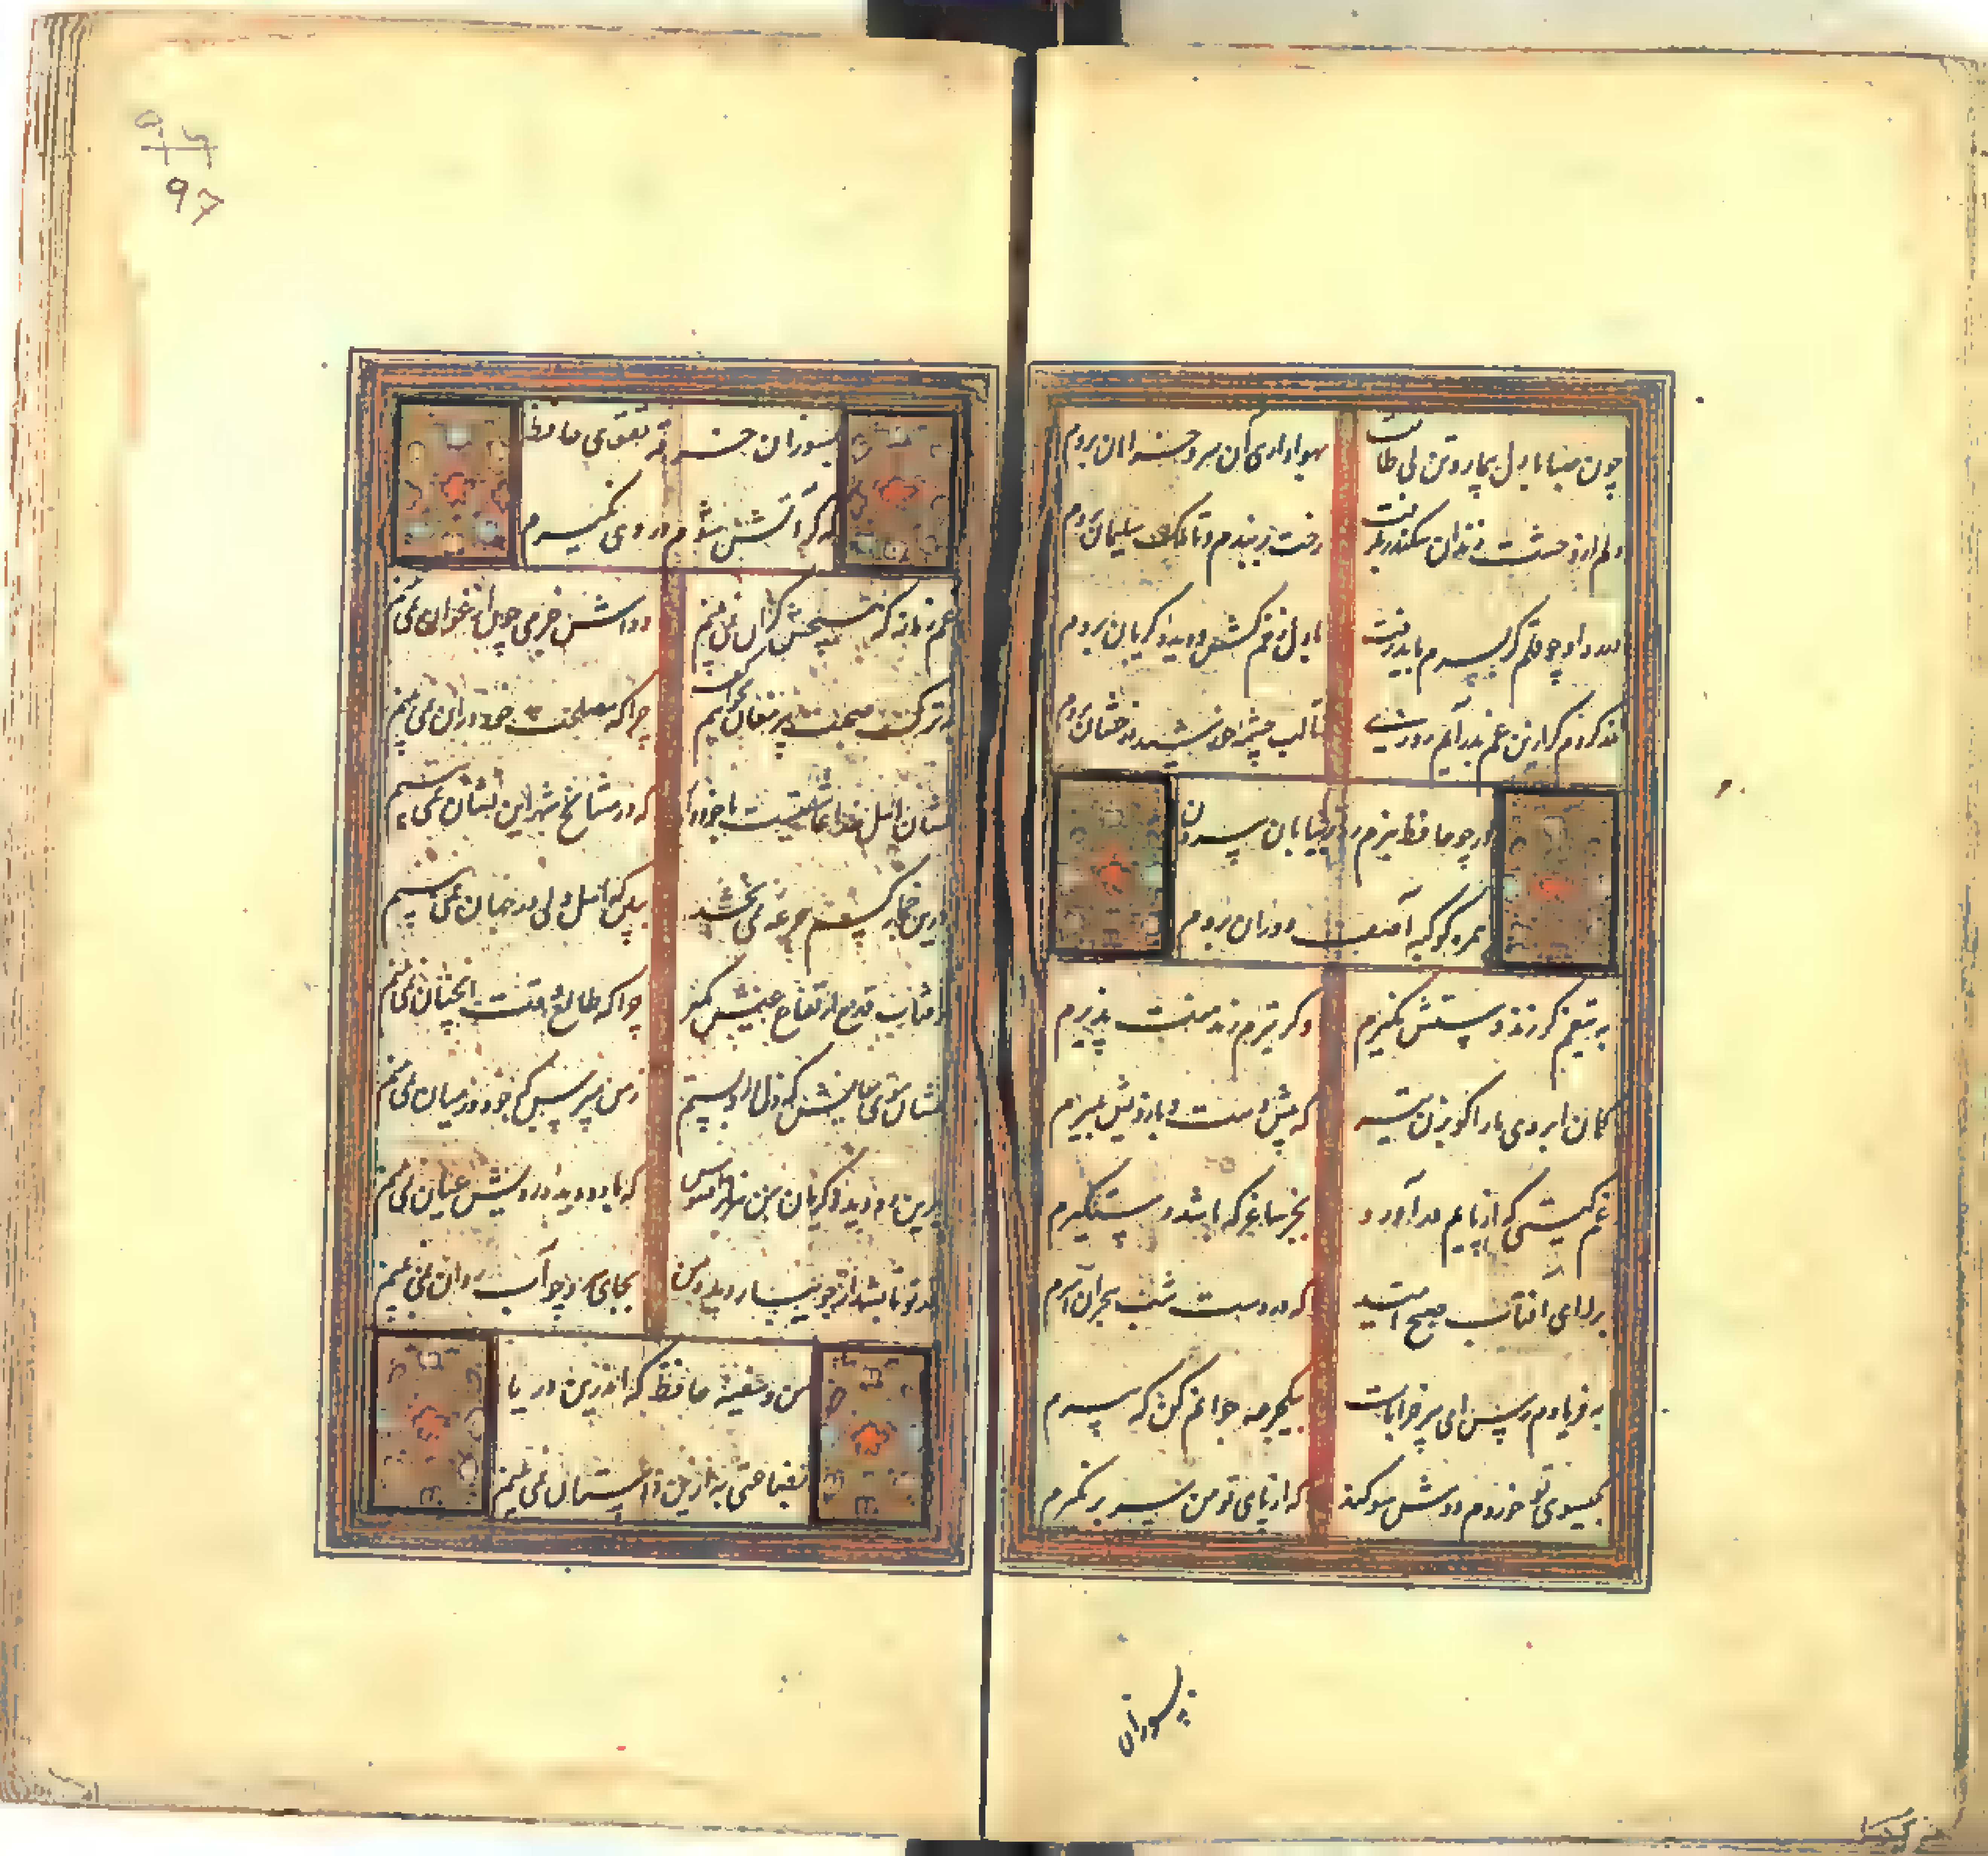 چون صبا با دل بیمار و تن بی طاقت
بهواداری آن سرو خرامان بروم
دلم از وحشت زندان سکندر بگرفت
رخت بربندم و تا ملک سلیمان بروم
در ره او چو قلم گر بسرم باید رفت
با دل زخم کش و دیده گریان بروم
نذر کردم گر ازین غم بدر آیم روزی
تا لب چشمه خورشید درخشان بروم
ور چو حافظ نبرم ره ز بیابان بیرون
همره کوکبه آصف دوران بروم
به تیغم گر زند دستش نگیرم
وگر تیرم زند منت پذیرم
کمان ابروی ما را گو بزن تیر
که پیش دست و بازویش بمیرم
غم گیتی گر از پایم درآورد
بجز ساغر که باشد دستگیرم
برآی ای آفتاب صبح امید
که در دست شب هجران اسیرم
به فریادم رس ای پیر خرابات
بیکجرعه جوانم کن که پیرم
بگیسوی تو خوردم دوش سوگند
که از پای تو من سر برنگیرم
بسوزان
بسوزان خرقه تقوی حافظ
که گر آتش شوم در وی نگیرم
غم زمانه که هیچش کران نمی بینم
دواش جز می چون ارغوان نمی بینم
به ترک صحبت پیر مغان نخواهم گفت
چرا که مصلحت خود در آن نمی بینم
نشان اهل خدا عاشقیست با خود دار
که در مشایخ شهر این نشان نمی بینم
درین خمار کسم جرعه نمی بخشد
ببین که اهل دلی در جهان نمی بینم
ز آفتاب قدح ارتفاع عیش بگیر
چرا که طالع وقت آنچنان نمی بینم
نشان موی میانش که دل درو بستم
ز من مپرس که خود در میان نمی بینم
برین دو دیده گریان من هزار افسوس
که با دو دیده رویش عیان نمی بینم
قد تو تا بشد از جویبار دیده من
بجای سرو جز آب روان نمی بینم
من و سفینه حافظ که اندرین دریا
بضاعتی به از این داستان نمی بینم
97